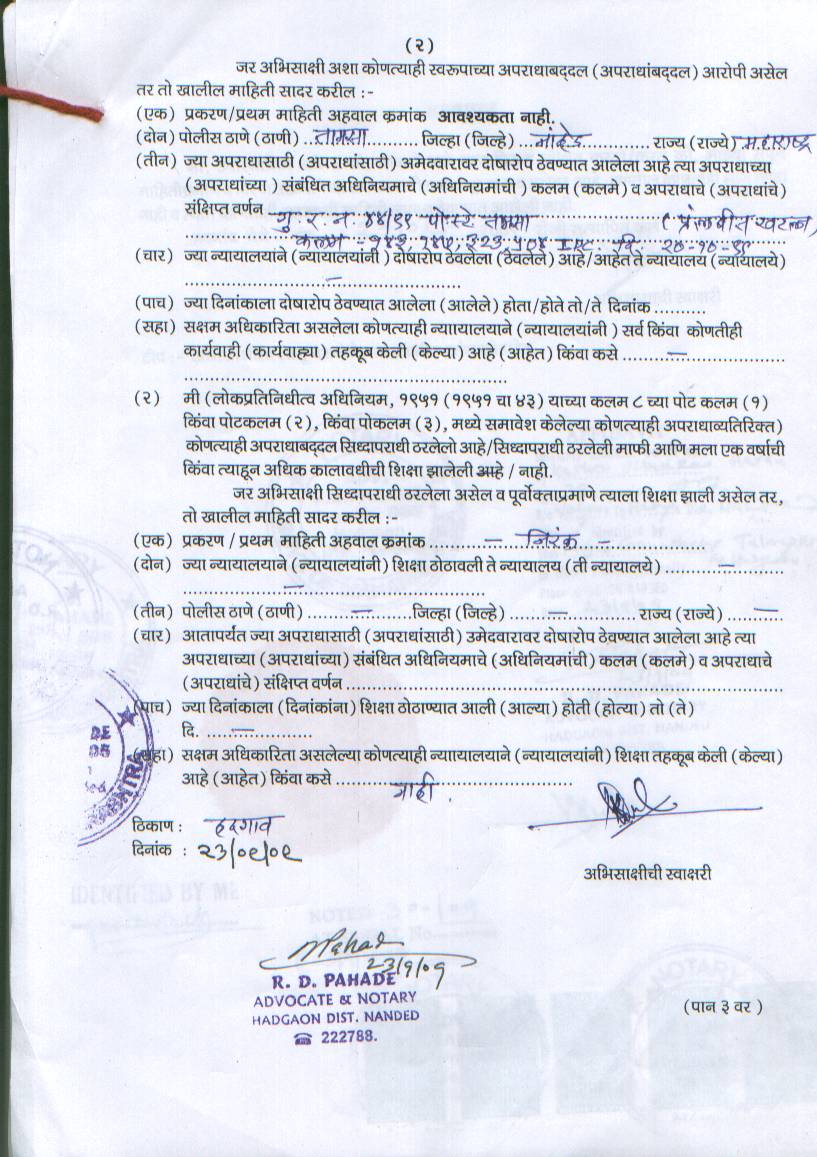 (२)
जर अभिसाक्षी अशा कोणत्याही स्वरूपाच्या अपराधाबद्दल (अपराधांबद्दल) आरोपी असेल
तर तो खालील माहिती सादर करील :-
(एक) प्रकरण/प्रथम माहिती अहवाल क्रमांक आवश्यकता नाही.
(दोन) पोलीस ठाणे (ठाणी) ..तामसा........... जिल्हा (जिल्हे) ...नांदेड............. राज्य (राज्ये) महाराष्ट्र
(तीन) ज्या अपराधासाठी (अपराधांसाठी) अमेदवारावर दोषारोप ठेवण्यात आलेला आहे त्या अपराधाच्या
(अपराधांच्या ) संबंधित अधिनियमाचे (अधिनियमांची ) कलम (कलमे) व अपराधाचे (अपराधांचे)
संक्षिप्त वर्णन गु. र. न. ४४/९९ पोस्टे तामसा
कलम - १४३, १४७, ३२३, ५०४ IPC दि. २०-१०-९९
(चार) ज्या न्यायालयाने (न्यायालयांनी ) दोषारोप ठेवलेला (ठेवलेले) आहे/आहेत ते न्यायालय (न्यायालये)
..................—..................
(पाच) ज्या दिनांकाला दोषारोप ठेवण्यात आलेला (आलेले) होता/होते तो/ते दिनांक ..........
(सहा) सक्षम अधिकारिता असलेला कोणत्याही न्याायालयाने (न्यायालयांनी ) सर्व किंवा कोणतीही
कार्यवाही (कार्यवाह्या) तहकूब केली (केल्या) आहे (आहेत) किंवा कसे ........—................
......................................................
(२) मी (लोकप्रतिनिधीत्व अधिनियम, १९५१ (१९५१ चा ४३) याच्या कलम ८ च्या पोट कलम (१)
किंवा पोटकलम (२), किंवा पोकलम (३), मध्ये समावेश केलेल्या कोणत्याही अपराधाव्यतिरिक्त)
कोणत्याही अपराधाबद्दल सिध्दापराधी ठरलेलो आहे/सिध्दापराधी ठरलेली माफी आणि मला एक वर्षाची
किंवा त्याहून अधिक कालावधीची शिक्षा झालेली आहे / नाही.
जर अभिसाक्षी सिध्दापराधी ठरलेला असेल व पूर्वोक्ताप्रमाणे त्याला शिक्षा झाली असेल तर,
तो खालील माहिती सादर करील :-
(एक) प्रकरण / प्रथम माहिती अहवाल क्रमांक.........— निरंक —..............
(दोन) ज्या न्यायालयाने (न्यायालयांनी) शिक्षा ठोठावली ते न्यायालय (ती न्यायालये) .........—.........
.................—..................
(तीन) पोलीस ठाणे (ठाणी) ........—........जिल्हा (जिल्हे) ........—........ राज्य (राज्ये) ....—....
(चार) आतापर्यंत ज्या अपराधासाठी (अपराधांसाठी) उमेदवारावर दोषारोप ठेवण्यात आलेला आहे त्या
अपराधाच्या (अपराधांच्या) संबंधित अधिनियमाचे (अधिनियमांची) कलम (कलमे) व अपराधाचे
(अपराधांचे) संक्षिप्त वर्णन ..............................................................
(पाच) ज्या दिनांकाला (दिनांकांना) शिक्षा ठोठाण्यात आली (आल्या) होती (होत्या) तो (ते)
दि. .....—..........
(सहा) सक्षम अधिकारिता असलेल्या कोणत्याही न्याायालयाने (न्यायालयांनी) शिक्षा तहकूब केली (केल्या)
आहे (आहेत) किंवा कसे .........नाही.....................
ठिकाण : हदगाव
दिनांक : २३/०९/०९
अभिसाक्षीची स्वाक्षरी
23/9/09
R. D. PAHADE
ADVOCATE & NOTARY
HADGAON DIST. NANDED
☎ 222788.
(पान ३ वर )